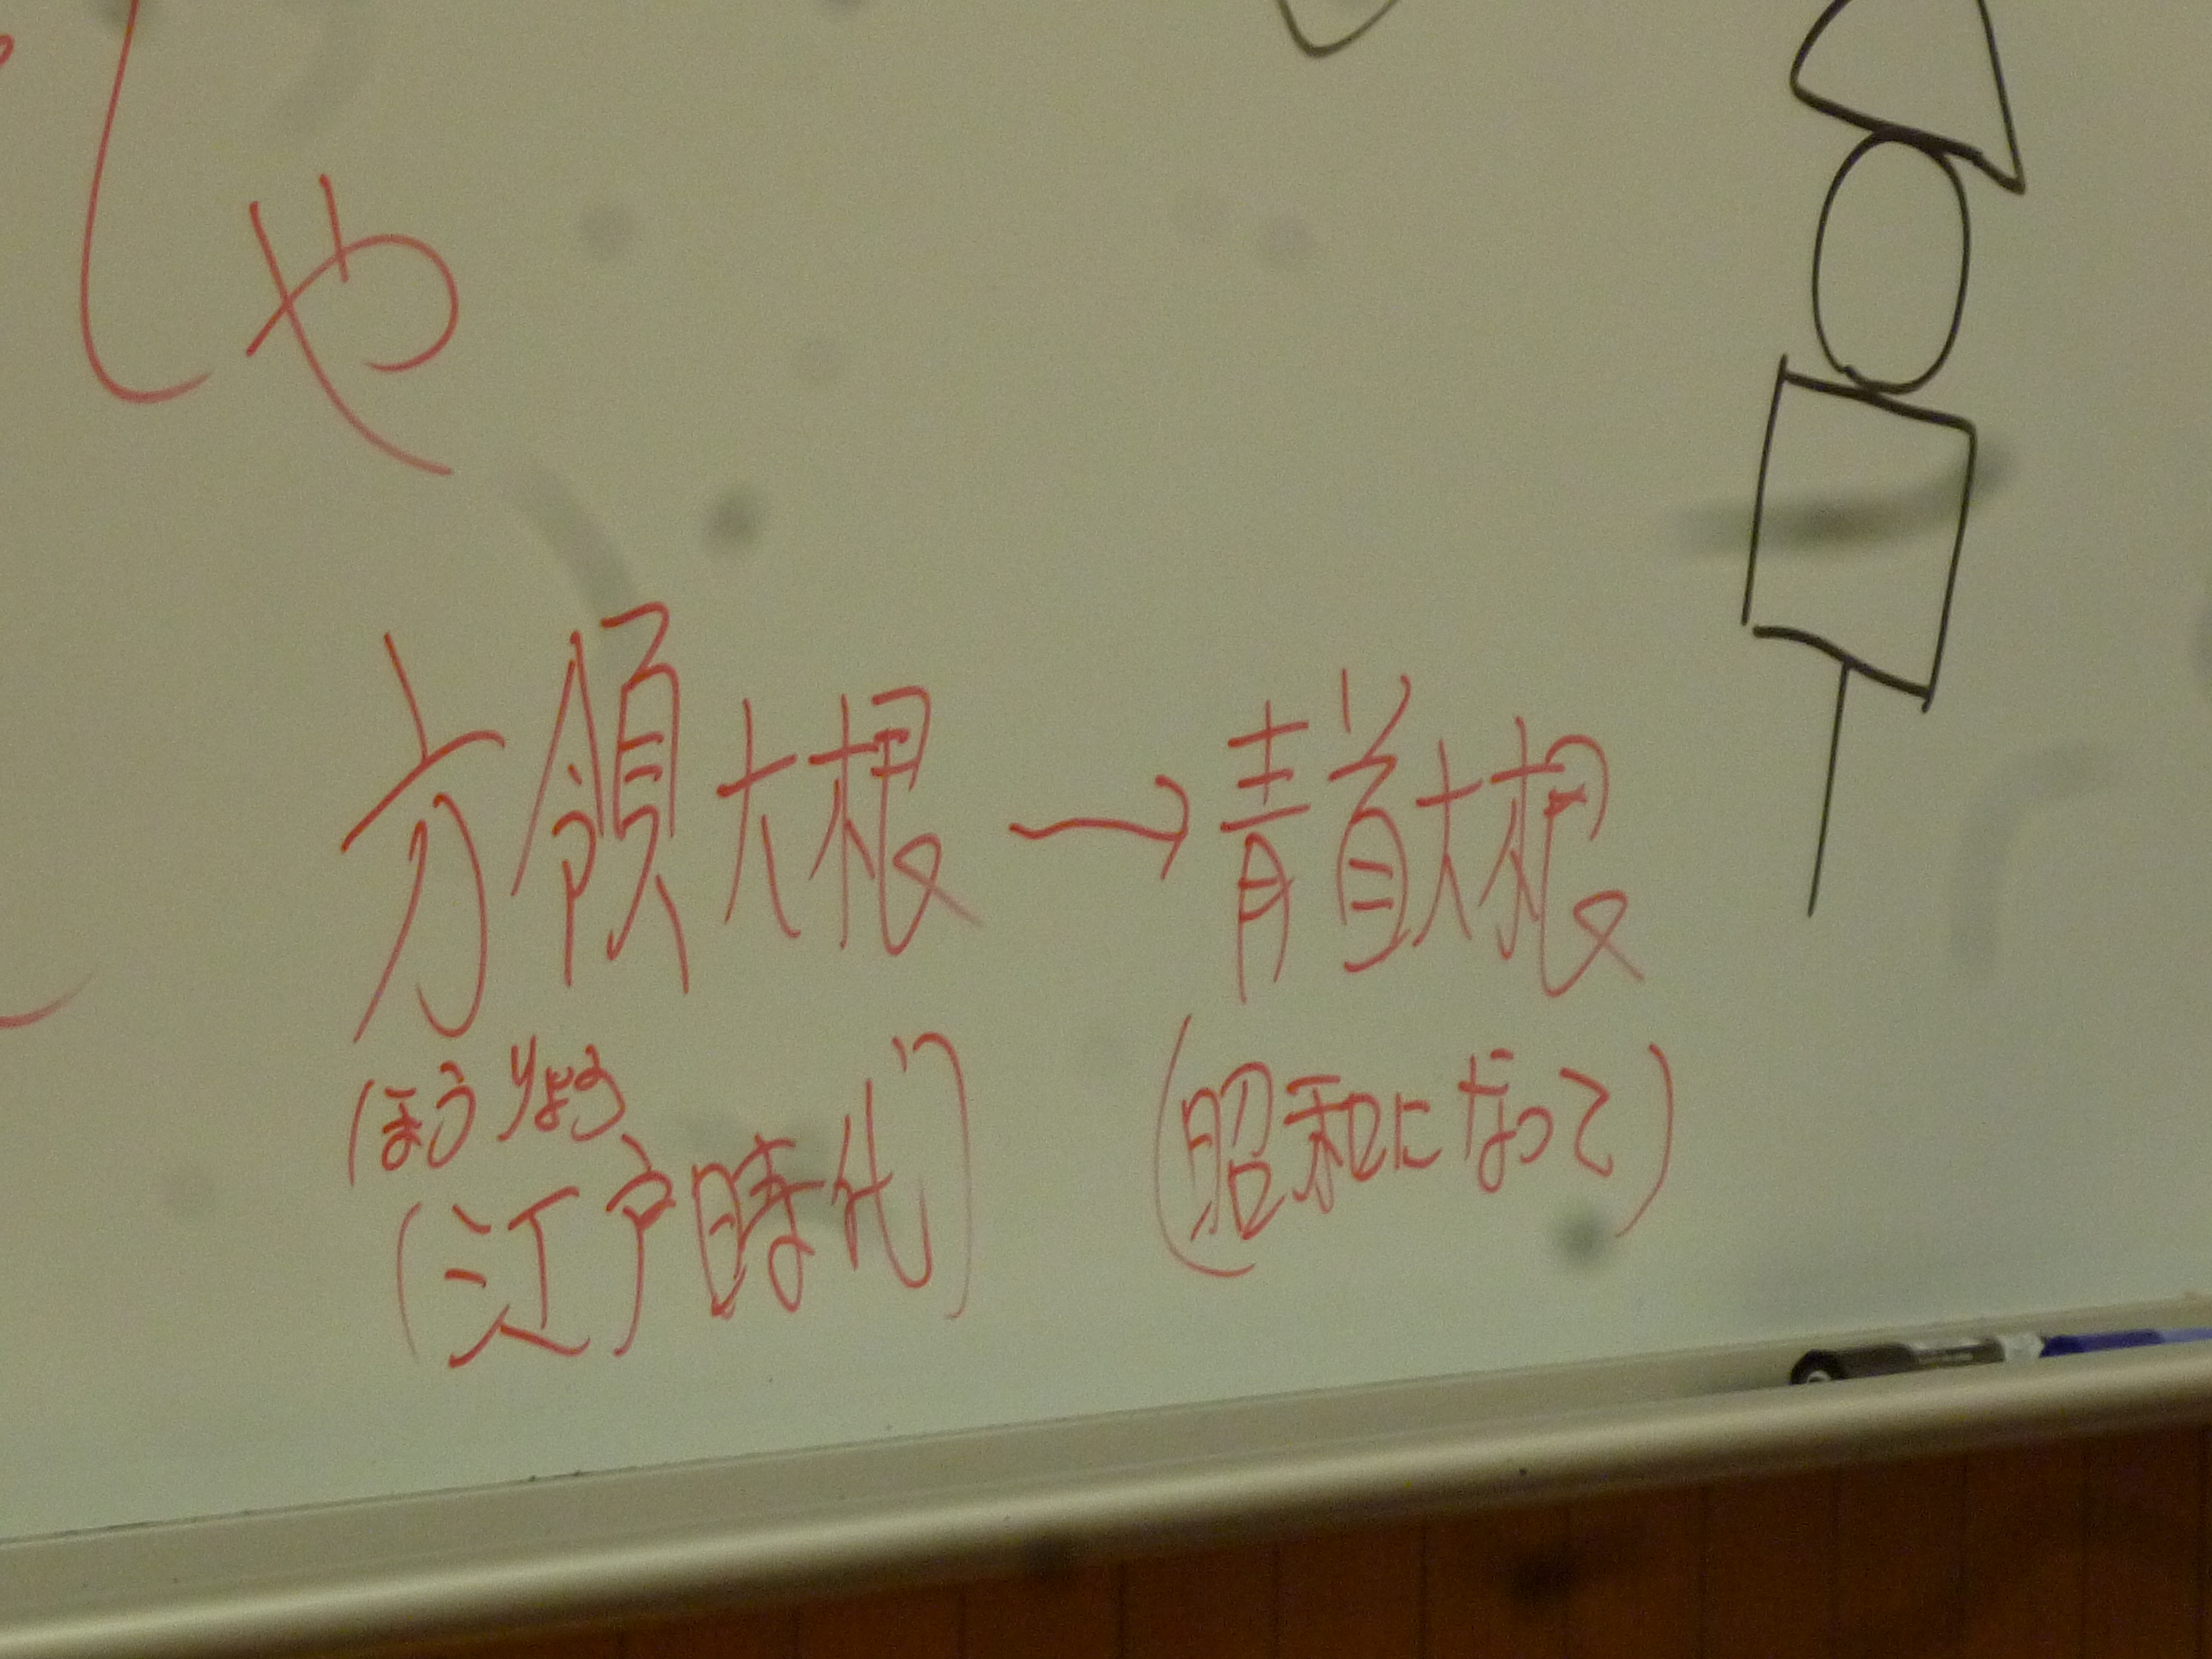 しや
方領大根→青首大根
(ほうりょう
(江戸時代) (昭和になって)